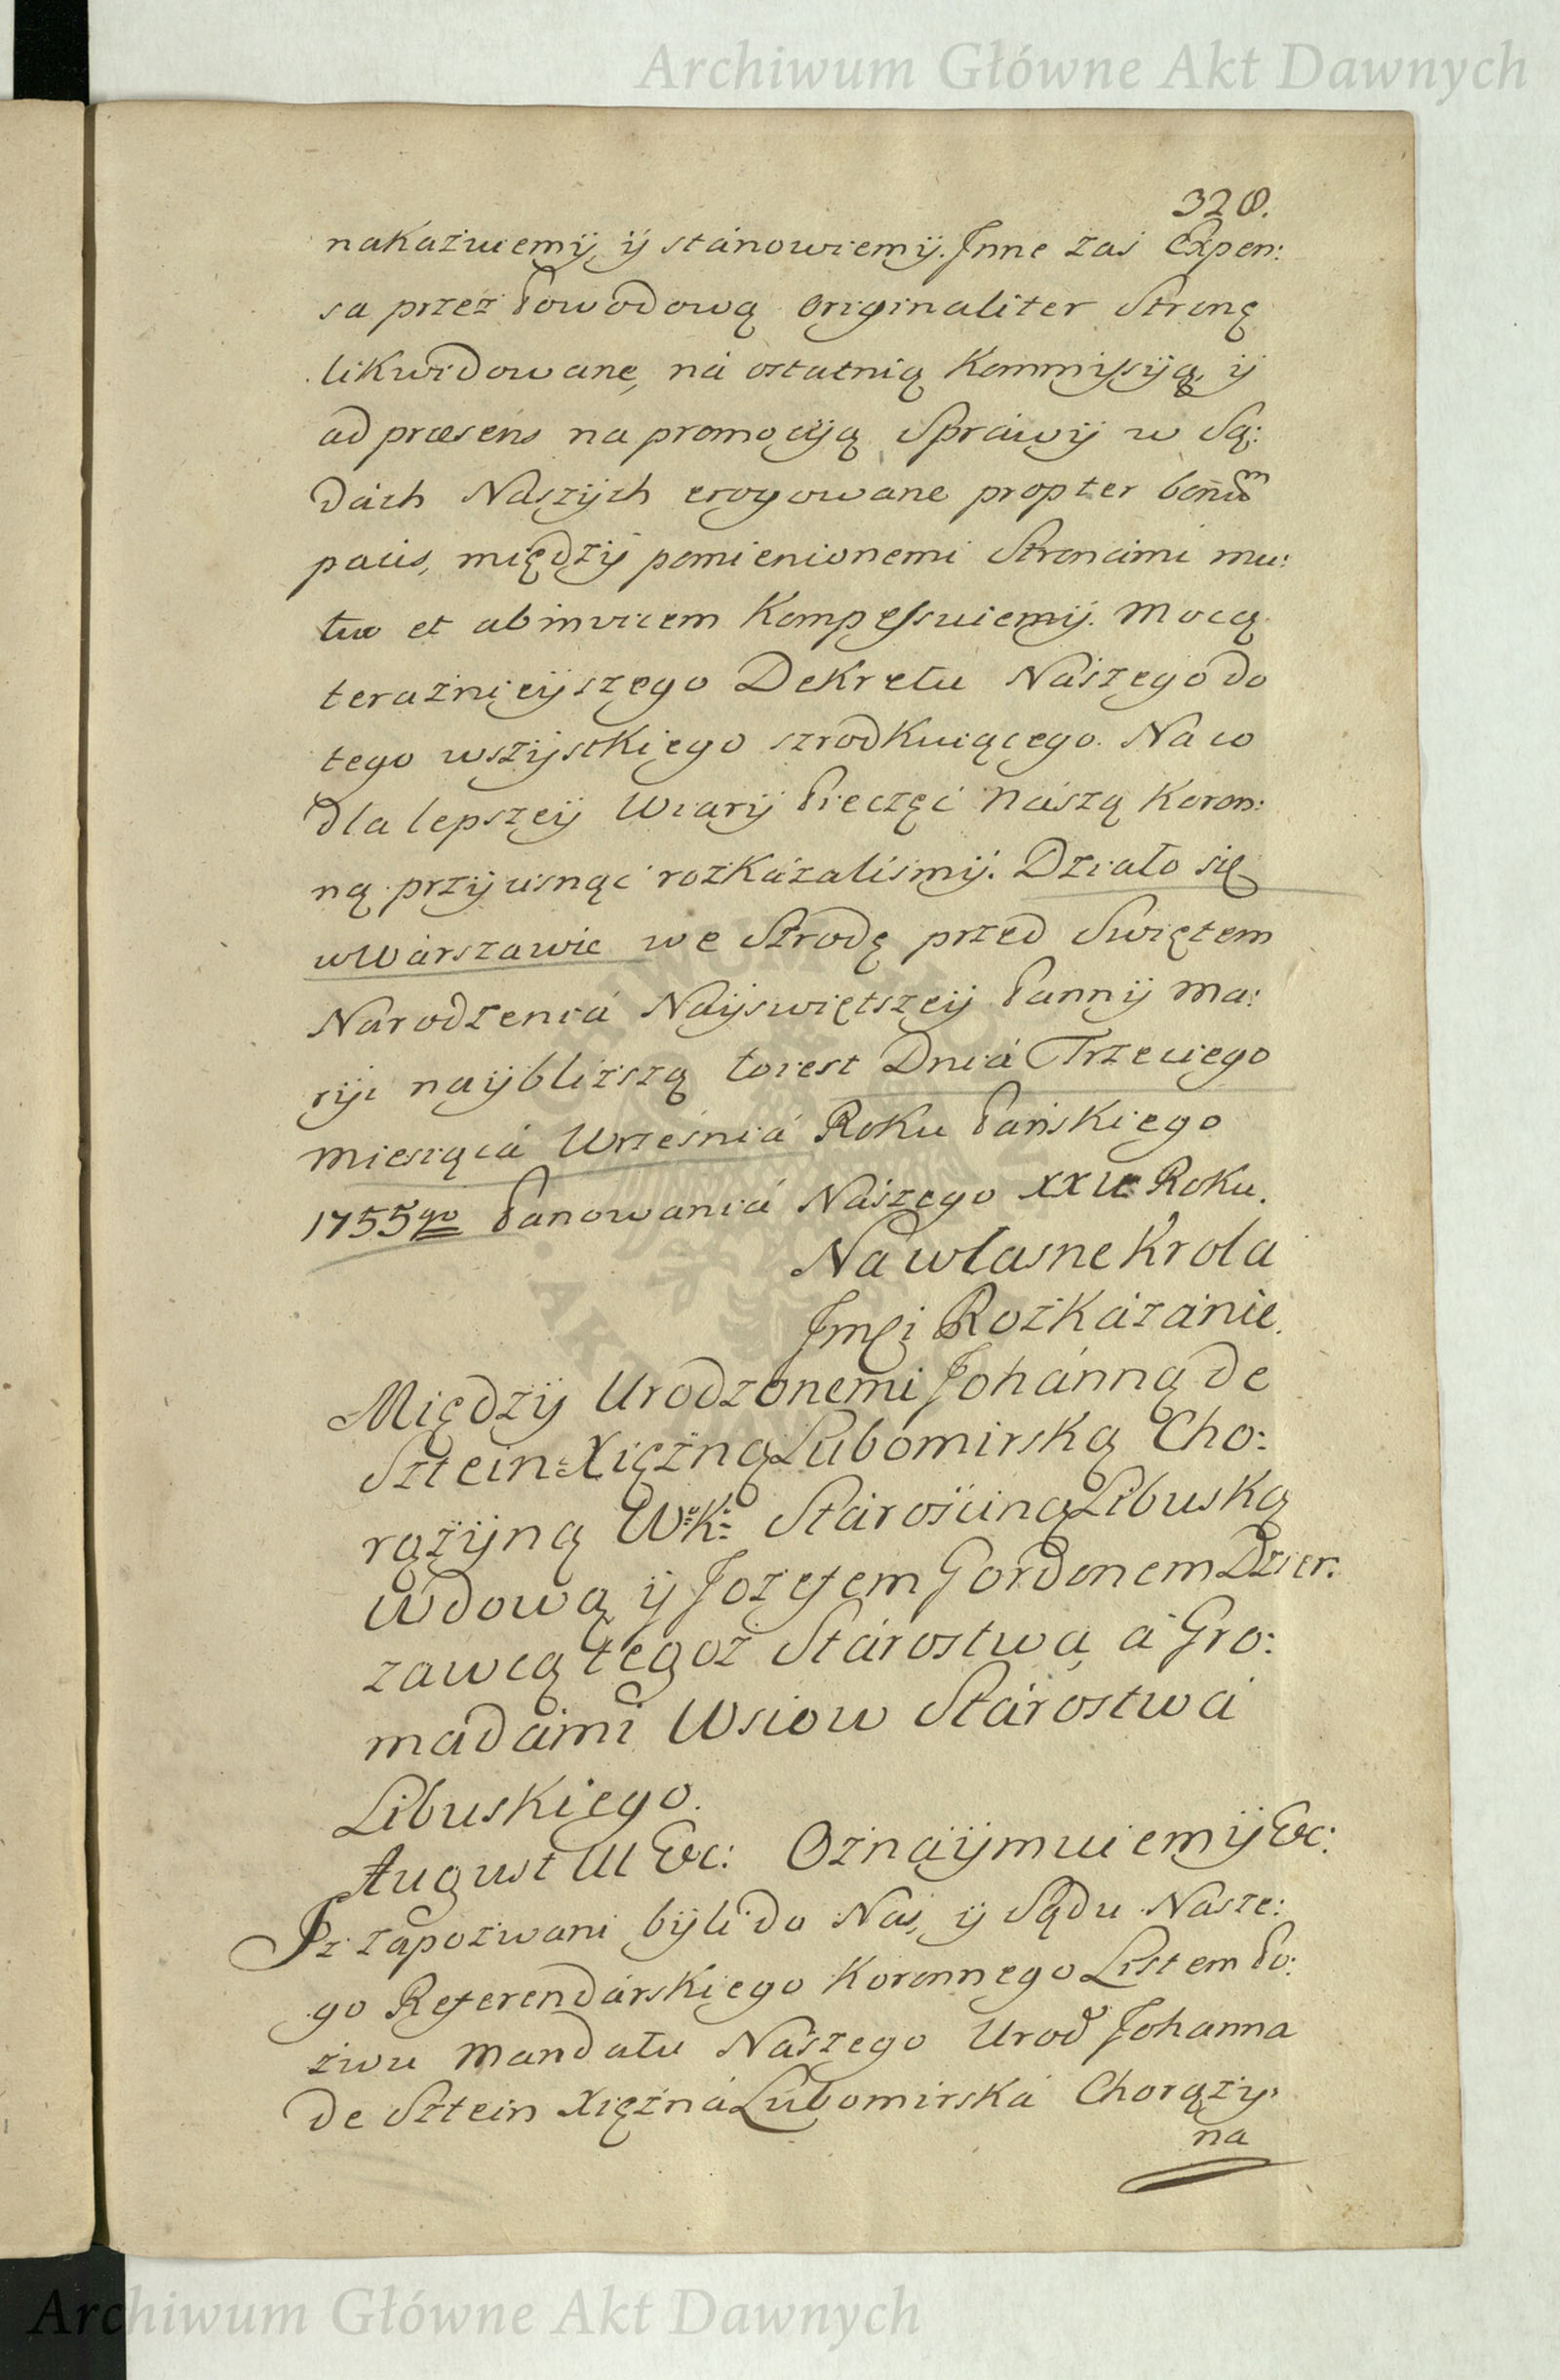 Archiwum Główne Akt Dawnych
328.
nakazuiemÿ, ÿ stánowiemÿ. Jnne zaś Expen:
sa przez Powodową originaliter Stronę
likwidowane, ná ostatnią Kommissÿą, ÿ
ad præsens na promocÿą Spráwÿ w Są:
dách Naszÿch erogowane propter bonum
pacis, międzÿ pomienionemi Stronámi mu:
tuo et abinvicem Kompessuiemÿ. Mocą
teraznieÿszego Dekretu Nászego do
tego wszÿstkiego szrodkuiącego. Na co
dla lepszeÿ Wiarÿ Pieczęć Nászą Koron:
ną przÿcisnąć rozkázálismÿ. Działo się
w Wárszawie we Szrodę przed Swiętem
Národzeniá Naÿswiętszeÿ Pannÿ Ma:
rÿi naÿbliższą to iest Dniá Trzeciego
Miesiącá Wrześniá Roku Páńskiego
1755go Panowaniá Nászego XXII Roku.
Na własne Krola
Jmśi Rozkázánie.
Międzÿ Urodzonemi Johánną de
Sztein Xiężną Lubomirską Cho:
rążÿną W: K: Stárościną Libuską
wdową ÿ Jozefem Gordonem Dzier:
zawcą tegoż Stárostwa, á Gro:
mádámi Wsiow Stárostwá
Libuskiego.
August III &c: Oznáÿmuiemÿ &c:
Jż zapozwani bÿli do Nás, ÿ Sądu Nasze:
go Referendárskiego Koronnego Listem Po:
zwu Mandatu Nászego Urod Johanna
de Sztein Xiężná Lubomirská Chorążÿ:
na
Archiwum Główne Akt Dawnych